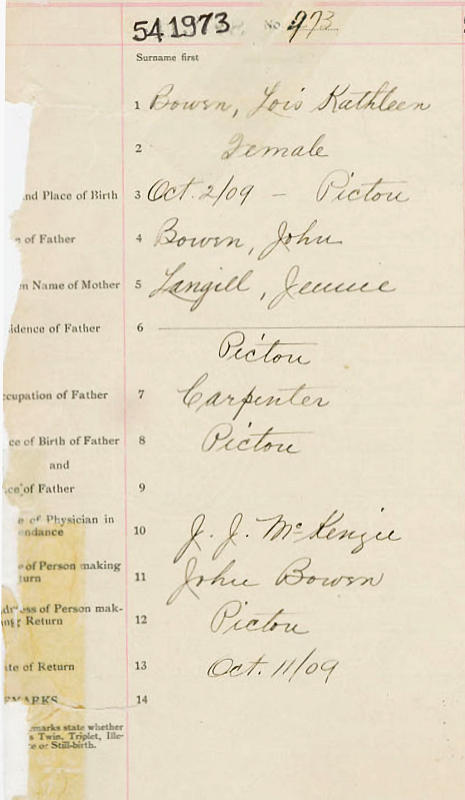 541973 No 973
Surname first
1 Bowen, Lois Kathleen
2 Female
nd Place of Birth 3 Oct. 2/09 — Pictou
of Father 4 Bowen, John
n Name of Mother 5 Langill, Jennie
idence of Father 6
Pictou
ccupation of Father 7 Carpenter
ce of Birth of Father 8 Pictou
and
ce of Father 9
e of Physician in
endance 10 J. J. McKenzie
e of Person making
turn 11 John Bowen
dress of Person mak-
ing Return 12 Pictou
te of Return 13 Oct. 11/09
EMARKS 14
emarks state whether
s Twin, Triplet, Ille-
te or Still-birth.